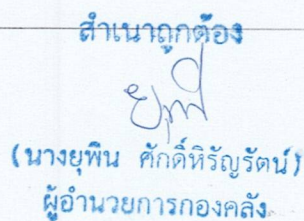 สำเนาถูกต้อง
(นางยุพิน ศักดิ์หิรัญรัตน์)
ผู้อำนวยการกองคลัง